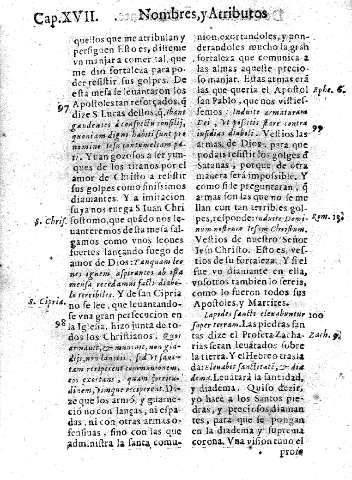 Cap. XVII. Nombres, y Atributos
quellos que me atribulan y
persiguen Esto es, disteme
vn manjar a comer tal, que
me dio fortaleza para po-
der resistir sus golpes. De
esta mesa se leuantaron los
Apostoles tan reforçados, q̃
97
dize S Lucas dellos, q̃ Ibant
gaudentes à conspectu consilij,
quoniam digni habiti sunt pro
nomine Iesu contumeliam pa-
ti. Y tan gozosos a ser yun-
ques de los tiranos por el
amor de Christo a resistir
sus golpes como finissimos
diamantes. Y a imitacion
suya nos ruega S Iuan Chri
S. Chris. sostomo, que quãdo nos le-
uantaremos de esta mesa sal-
gamos como vnos leones
fuertes lançando fuego de
amor de Dios: Tanquam leo-
nes ignem aspirantes ab ista
mensa recedamus facti diabo-
lo terribiles. Y de san Cipria
S. Cipria. no se lee, que leuantando-
se vna gran persecucion en
98
la Iglesia, hizo junta de to-
dos los Christianos.
armauit, & muniuit, non gla-
dijs, non lanceis, sed vt sanc-
tam reciperent communionem,
eos exortans, quam
dinem,
ze que los armò, y guarne-
ciò no con lanças, ni espa-
das, ni con otras armas o-
fensiuas, sino con las que
administra la santa comu-
nion, exortandoles, y pon-
derandoles mucho la gran
fortaleza que comunica a
las almas aquelle precio-
so manjar. Estas armas era
las que queria el Apostol
san Pablo, que nos vistiesse-
Ephe. 6.
mos: Induite armaturam
Dei, vt possitis stare contra
insidias diaboli. Vestios las
99
armas de Dios, para que
podais resistir los golpes de
Satanas, porque de otra
manera serà impossible. Y
como si le preguntaran, q̃
armas son las que no se me-
llan con tan terribles gol-
pes, responde: Induite Domi-
Rom. 13.
num nostrum Iesum Christum.
Vestios de nuestro Señor
Iesu Christo. Esto es, ves-
tios de su fortaleza. Y si el
fue vn diamante en ella,
vosotros tambien lo sereis,
como lo fueron todos sus
Apostoles, y Martires.
Lapides sancti eleuabuntur
100
super terram. Las piedras san-
tas dize el Profeta Zacha-
Zach. 9.
rias seran leuantados sobre
la tierra. Y el Hebreo trasla
da: Eleuabit sanctitatē, & dia-
dema. Leuãtarà la santidad,
y diadema. Quiso dezir,
yo harè a los Santos pie-
dras, y preciosos diaman-
tes, para que se pongan
en la diadema y suprema
corona. Vna vision tuuo el
prose